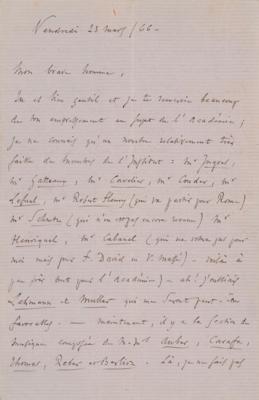 Vendredi 23 mars / 66 -
Mon brave homme,
Tu es bien gentil et je te remercie beaucoup
de ton empressement au sujet de l'Académie ;
je ne connais qu'un nombre relativement très
faible de membres de l'Institut : Mr Ingres,
Mr Gatteaux, Mr Cavelier, Mr Couder, Mr
Lefuel, Mr Robert Fleury (qui va partir pour Rome)
Mr Schnetz (qui n'en est pas encore revenu) Mr
Henriquel, Mr Cabanel (qui ne votera pas pour
moi mais pour F. David ou V. Massé) - voilà à
peu près tout pour l'Académie) - ah ! j'oubliais
Lehmann et Muller qui me seront peut-être
favorables. - maintenant, il y a la section de
musique composée de M.M. Auber, Carafa,
Thomas, Reber et Berlioz. - Là, je ne fais pas